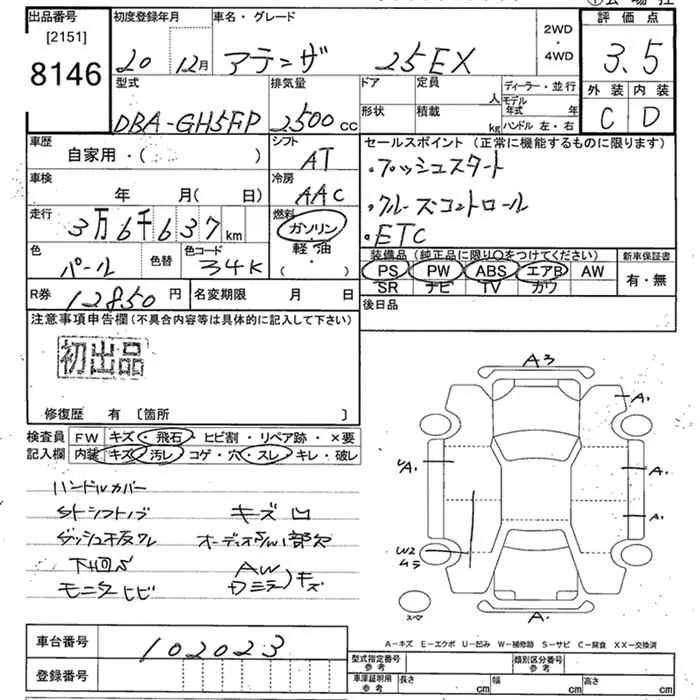 出品番号
[2151]
8146
初度登録年月
20 12月
車名・グレード
アテンザ 25EX
2WD
・
4WD
評価点
3.5
外装 内装
C D
型式
DBA-GH5FP
排気量
2500 cc
ドア
定員
人
形状
積載
kg
ディーラー・並行
モデル年式 年
ハンドル 左・右
車歴
自家用・( )
シフト
AT
車検
年 月( 日)
冷房
AAC
走行
3万6千637 km
燃料
ガソリン
・
軽・油
色
パール
色替
色コード
34K
R券 12850 円
名変期限 月 日
セールスポイント (正常に機能するものに限ります)
・プッシュスタート
・クルーズコントロール
・ETC
装備品 (純正品に限り○をつけてください)
PS PW ABS エアB AW
SR ナビ TV カワ
新車保証書
有・無
後日品
注意事項申告欄(不具合内容等は具体的に記入して下さい)
初出品
修復歴 有 〔箇所 〕
検査員記入欄
FW キズ・飛石・ヒビ割・リペア跡・×要
内装 キズ・汚レ・コゲ・穴・スレ・キレ・破レ
ハンドルカバー
キズ凹
モニタヒビ
AW
キズ
A3
A1
A1
A1
A1
W2
スペア
A-キズ E-エクボ U-凹み W-補修跡 S-サビ C-腐食 XX-交換済
車台番号
102023
登録番号
型式指定番号
参考
類別区分番号
参考
車庫証明用
参考
長さ cm
幅 cm
高さ cm